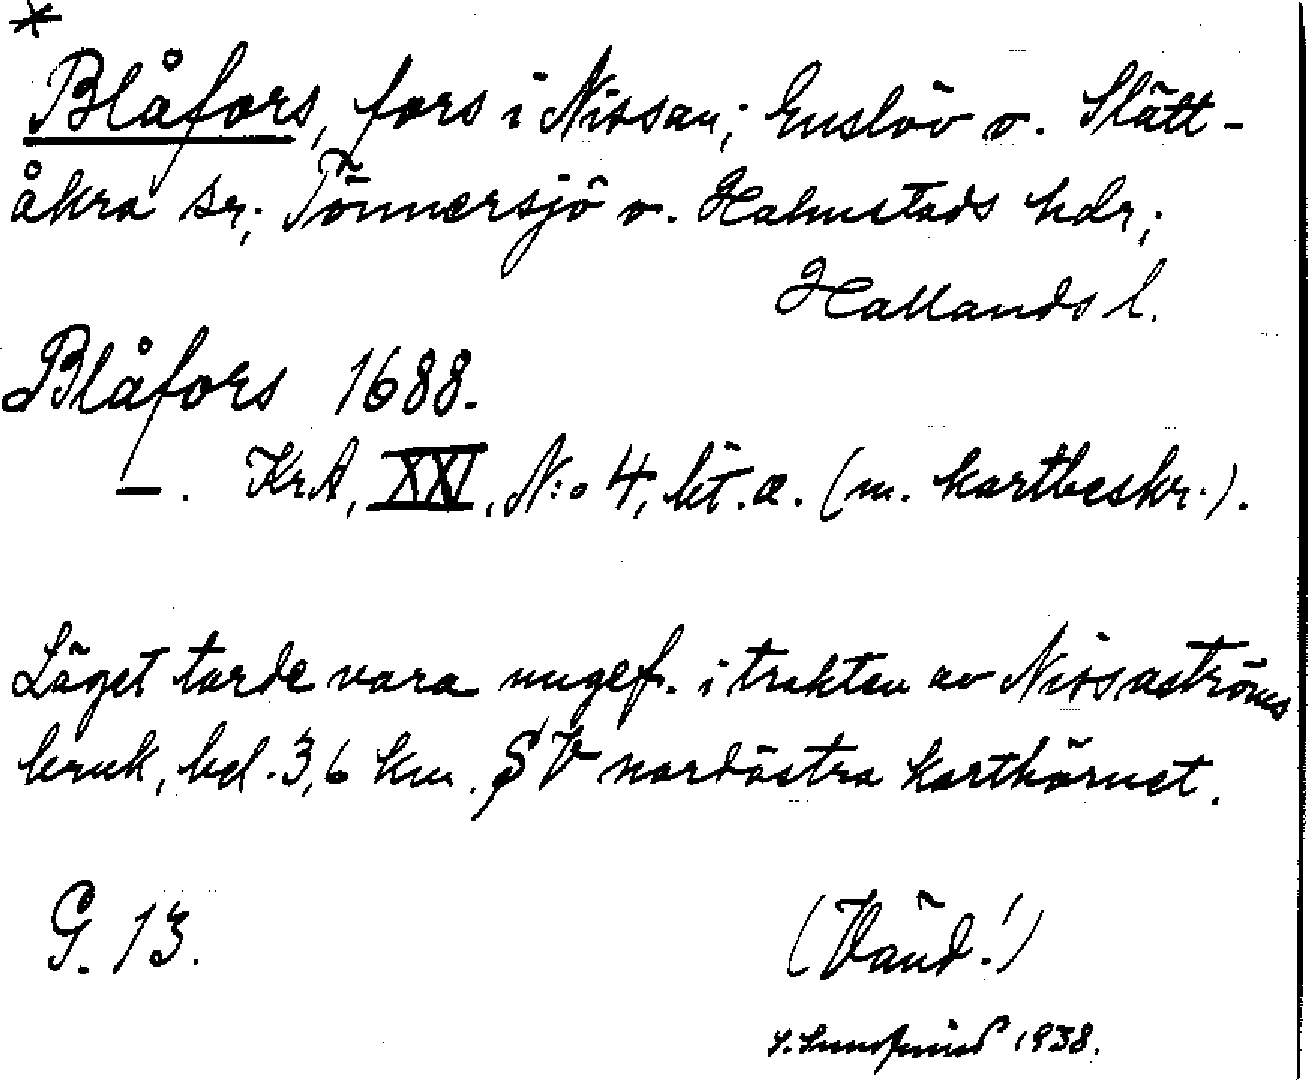 *
Blåfors, fors i Nissan; Enslöv o. Slätt-
åkra sr; Tönnersjö o. Halmstads hdr;
Hallands l.
Blåfors 1688.
—. KrA, XXI, N:o 4, lit. a. (m. kartbeskr.).
Läget torde vara ungef. i trakten av Nissaströms
bruk, bel. 3,6 km. SV nordöstra karthörnet.
G. 13.
(Vänd!)
1938.